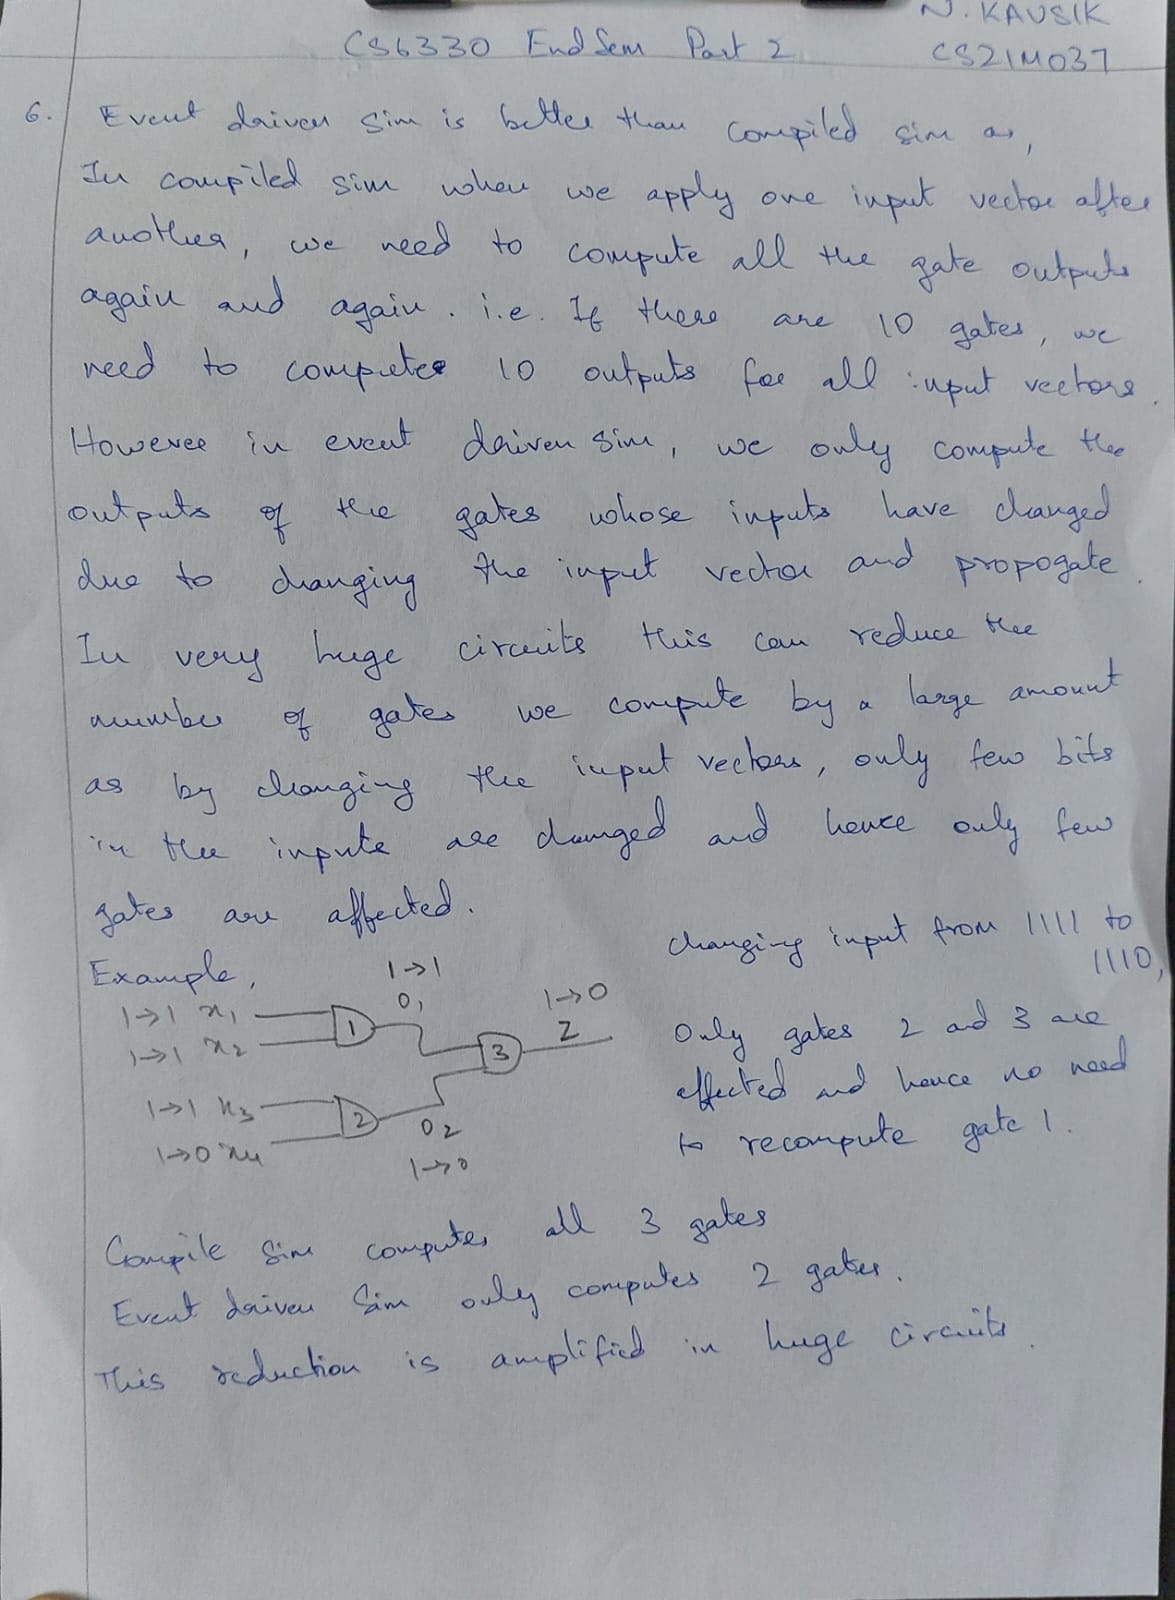 N. KAUSIK
CS6330 End Sem Part 2
CS21M037
6. Event driven sim is better than compiled sim as,
In compiled sim when we apply one input vector after
another, we need to compute all the gate outputs
again and again. i.e. If there are 10 gates, we
need to compute 10 outputs for all input vectors.
However in event driven sim, we only compute the
outputs of the gates whose inputs have changed
due to changing the input vector and propogate.
In very huge circuits this can reduce the
number of gates we compute by a large amount
as by changing the input vectors, only few bits
in the inputs are changed and hence only few
gates are affected.
Example,
1→1 x1
1→1 x2
1
1→1
O1
1→1 x3
1→0 x4
2
O2
1→0
3
1→0
Z
changing input from 1111 to
1110,
Only gates 2 and 3 are
affected and hence no need
to recompute gate 1.
Compile Sim computes all 3 gates
Event driven Sim only computes 2 gates.
This reduction is amplified in huge circuits.